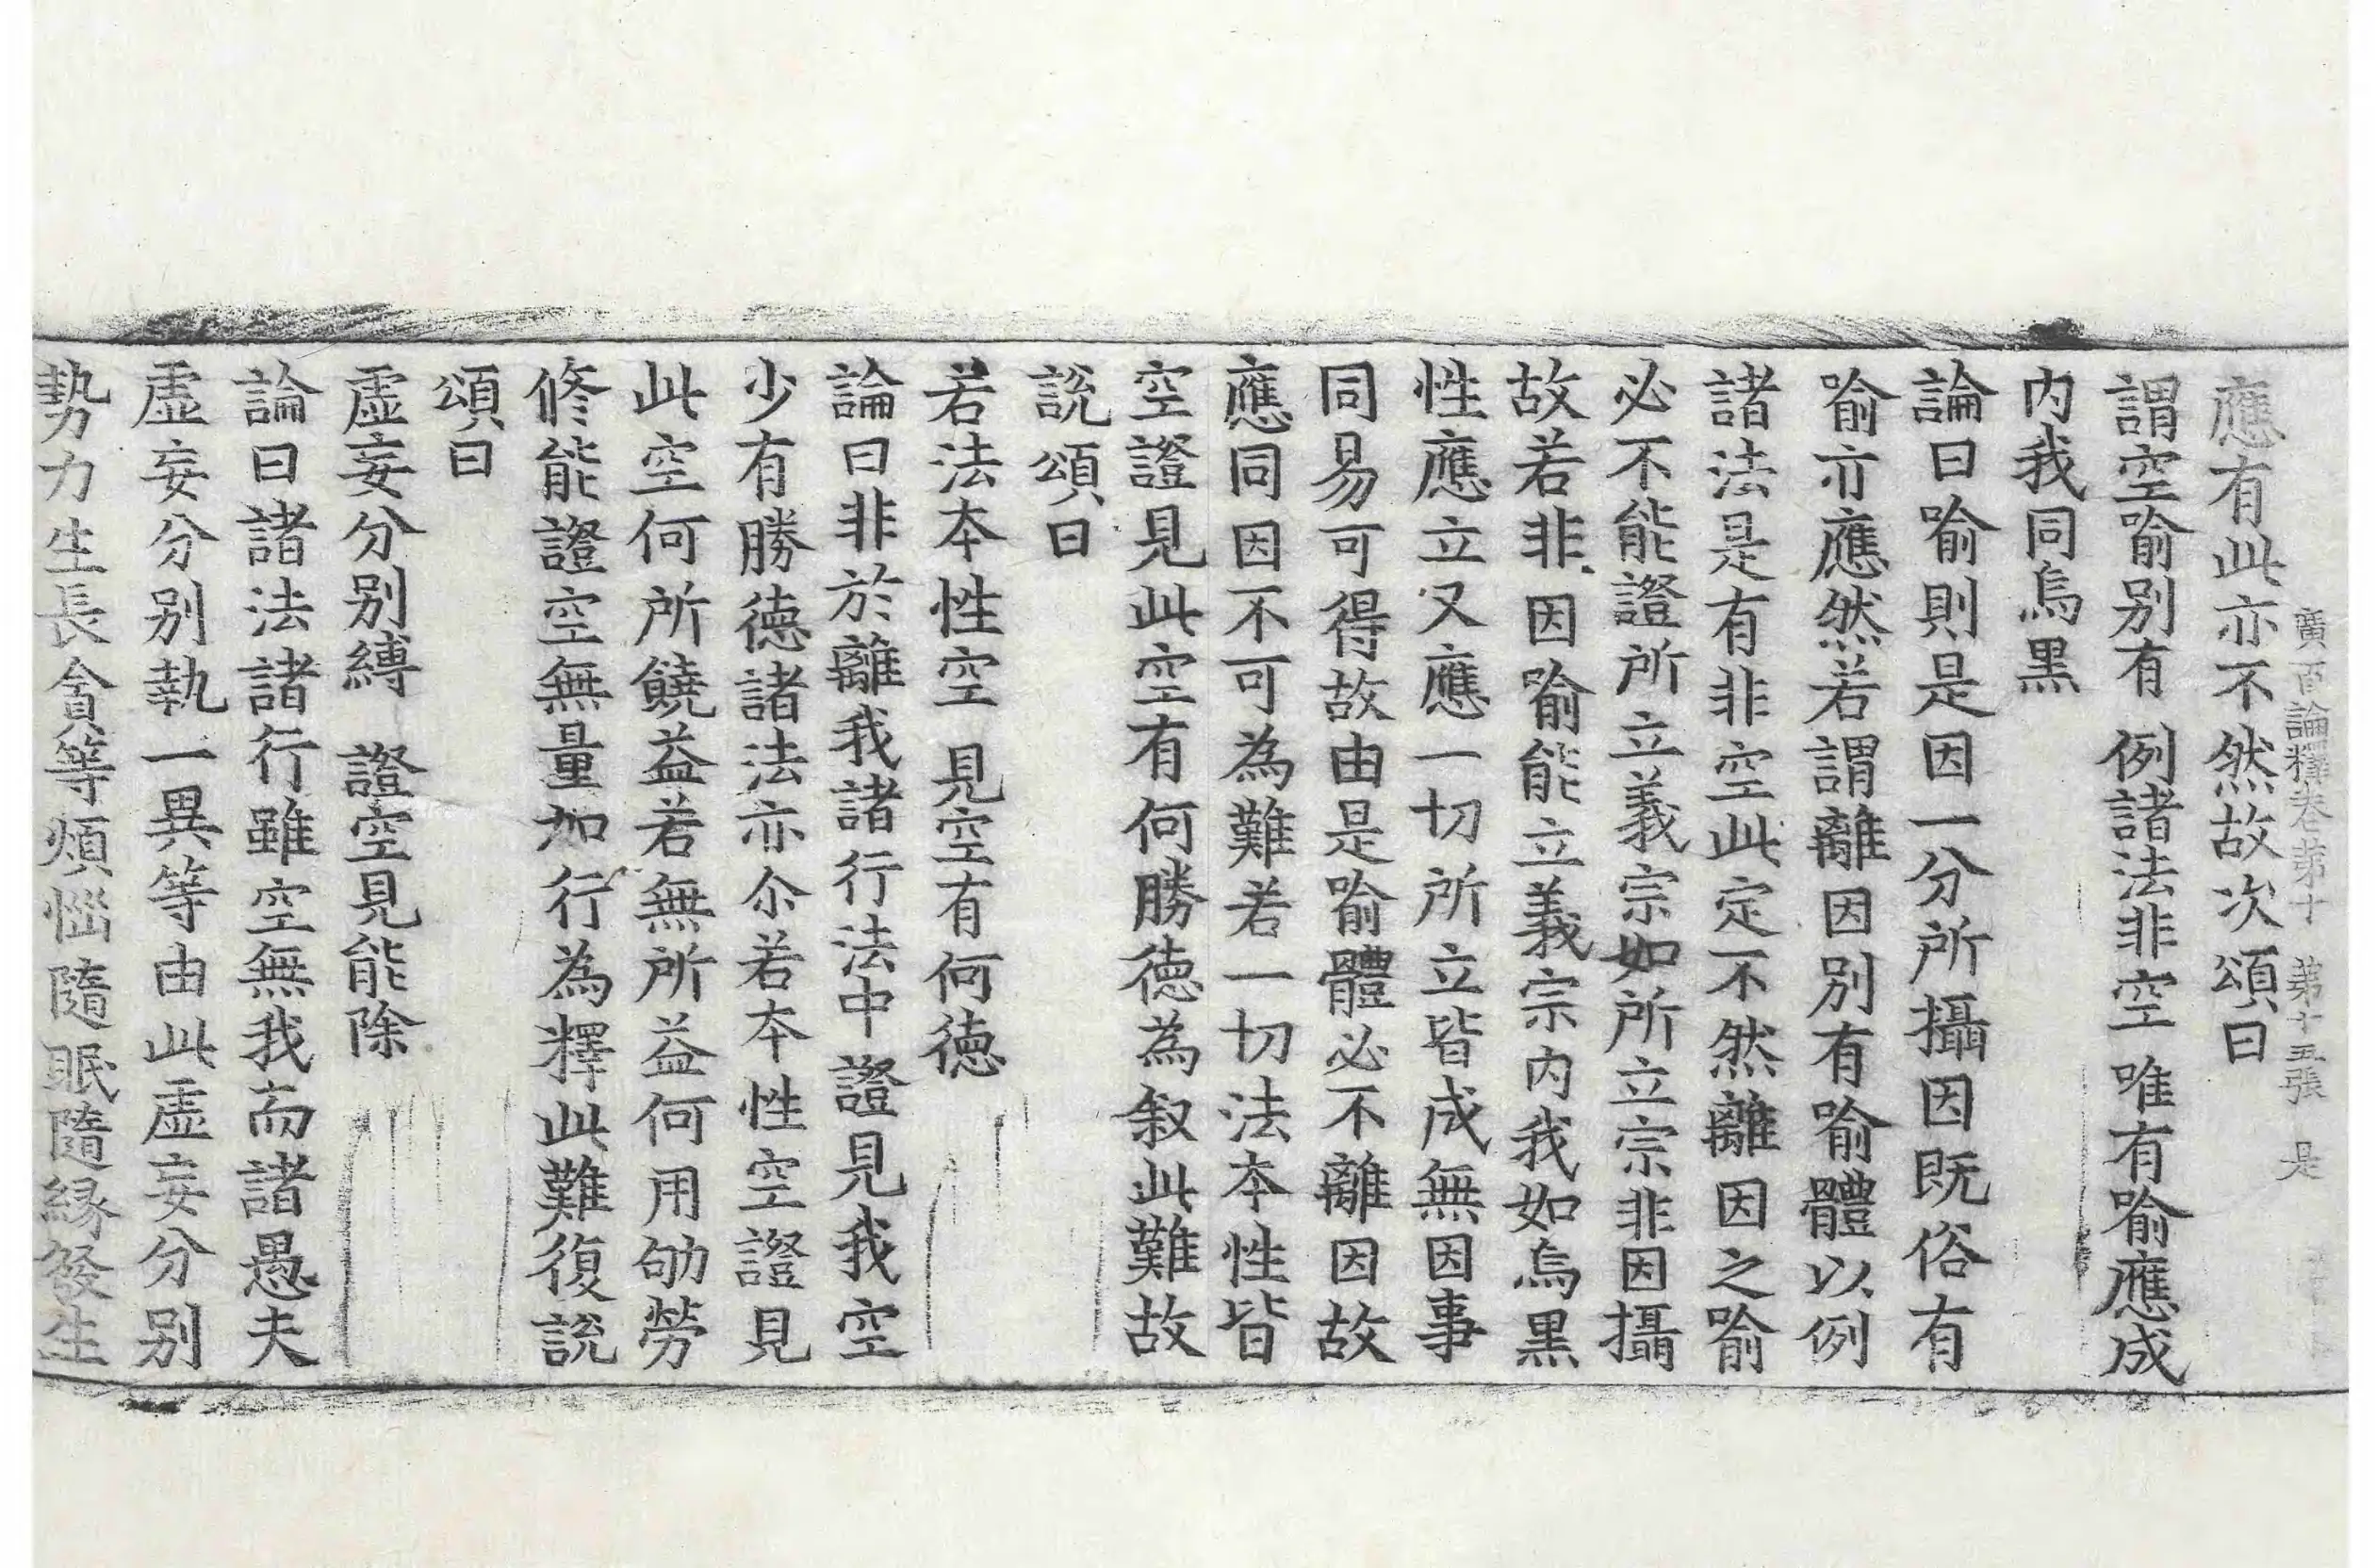 廣百論釋卷苐十　苐十五張　是
應有此亦不然故次頌曰
謂空喻别有　例諸法非空　唯有喻應成
内我同烏黑
論曰喻則是因一分所攝因既俗有
喻亦應然若謂離因别有喻體以例
諸法是有非空此定不然離因之喻
必不能證所立義宗如所立宗非因攝
故若非因喻能立義宗内我如烏黑
性應立又應一切所立皆成無因事
同易可得故由是喻體必不離因故
應同因不可為難若一切法本性皆
空證見此空有何勝德為叙此難故
說頌曰
若法本性空　見空有何德
論曰非於離我諸行法中證見我空
少有勝德諸法亦尒若本性空證見
此空何所饒益若無所益何用劬勞
修能證空無量加行為釋此難復説
頌曰
虛妄分别縛　證空見能除
論曰諸法諸行雖空無我而諸愚夫
虛妄分别執一異等由此虛妄分别
勢力生長貪等煩惱隨眠隨緣發生